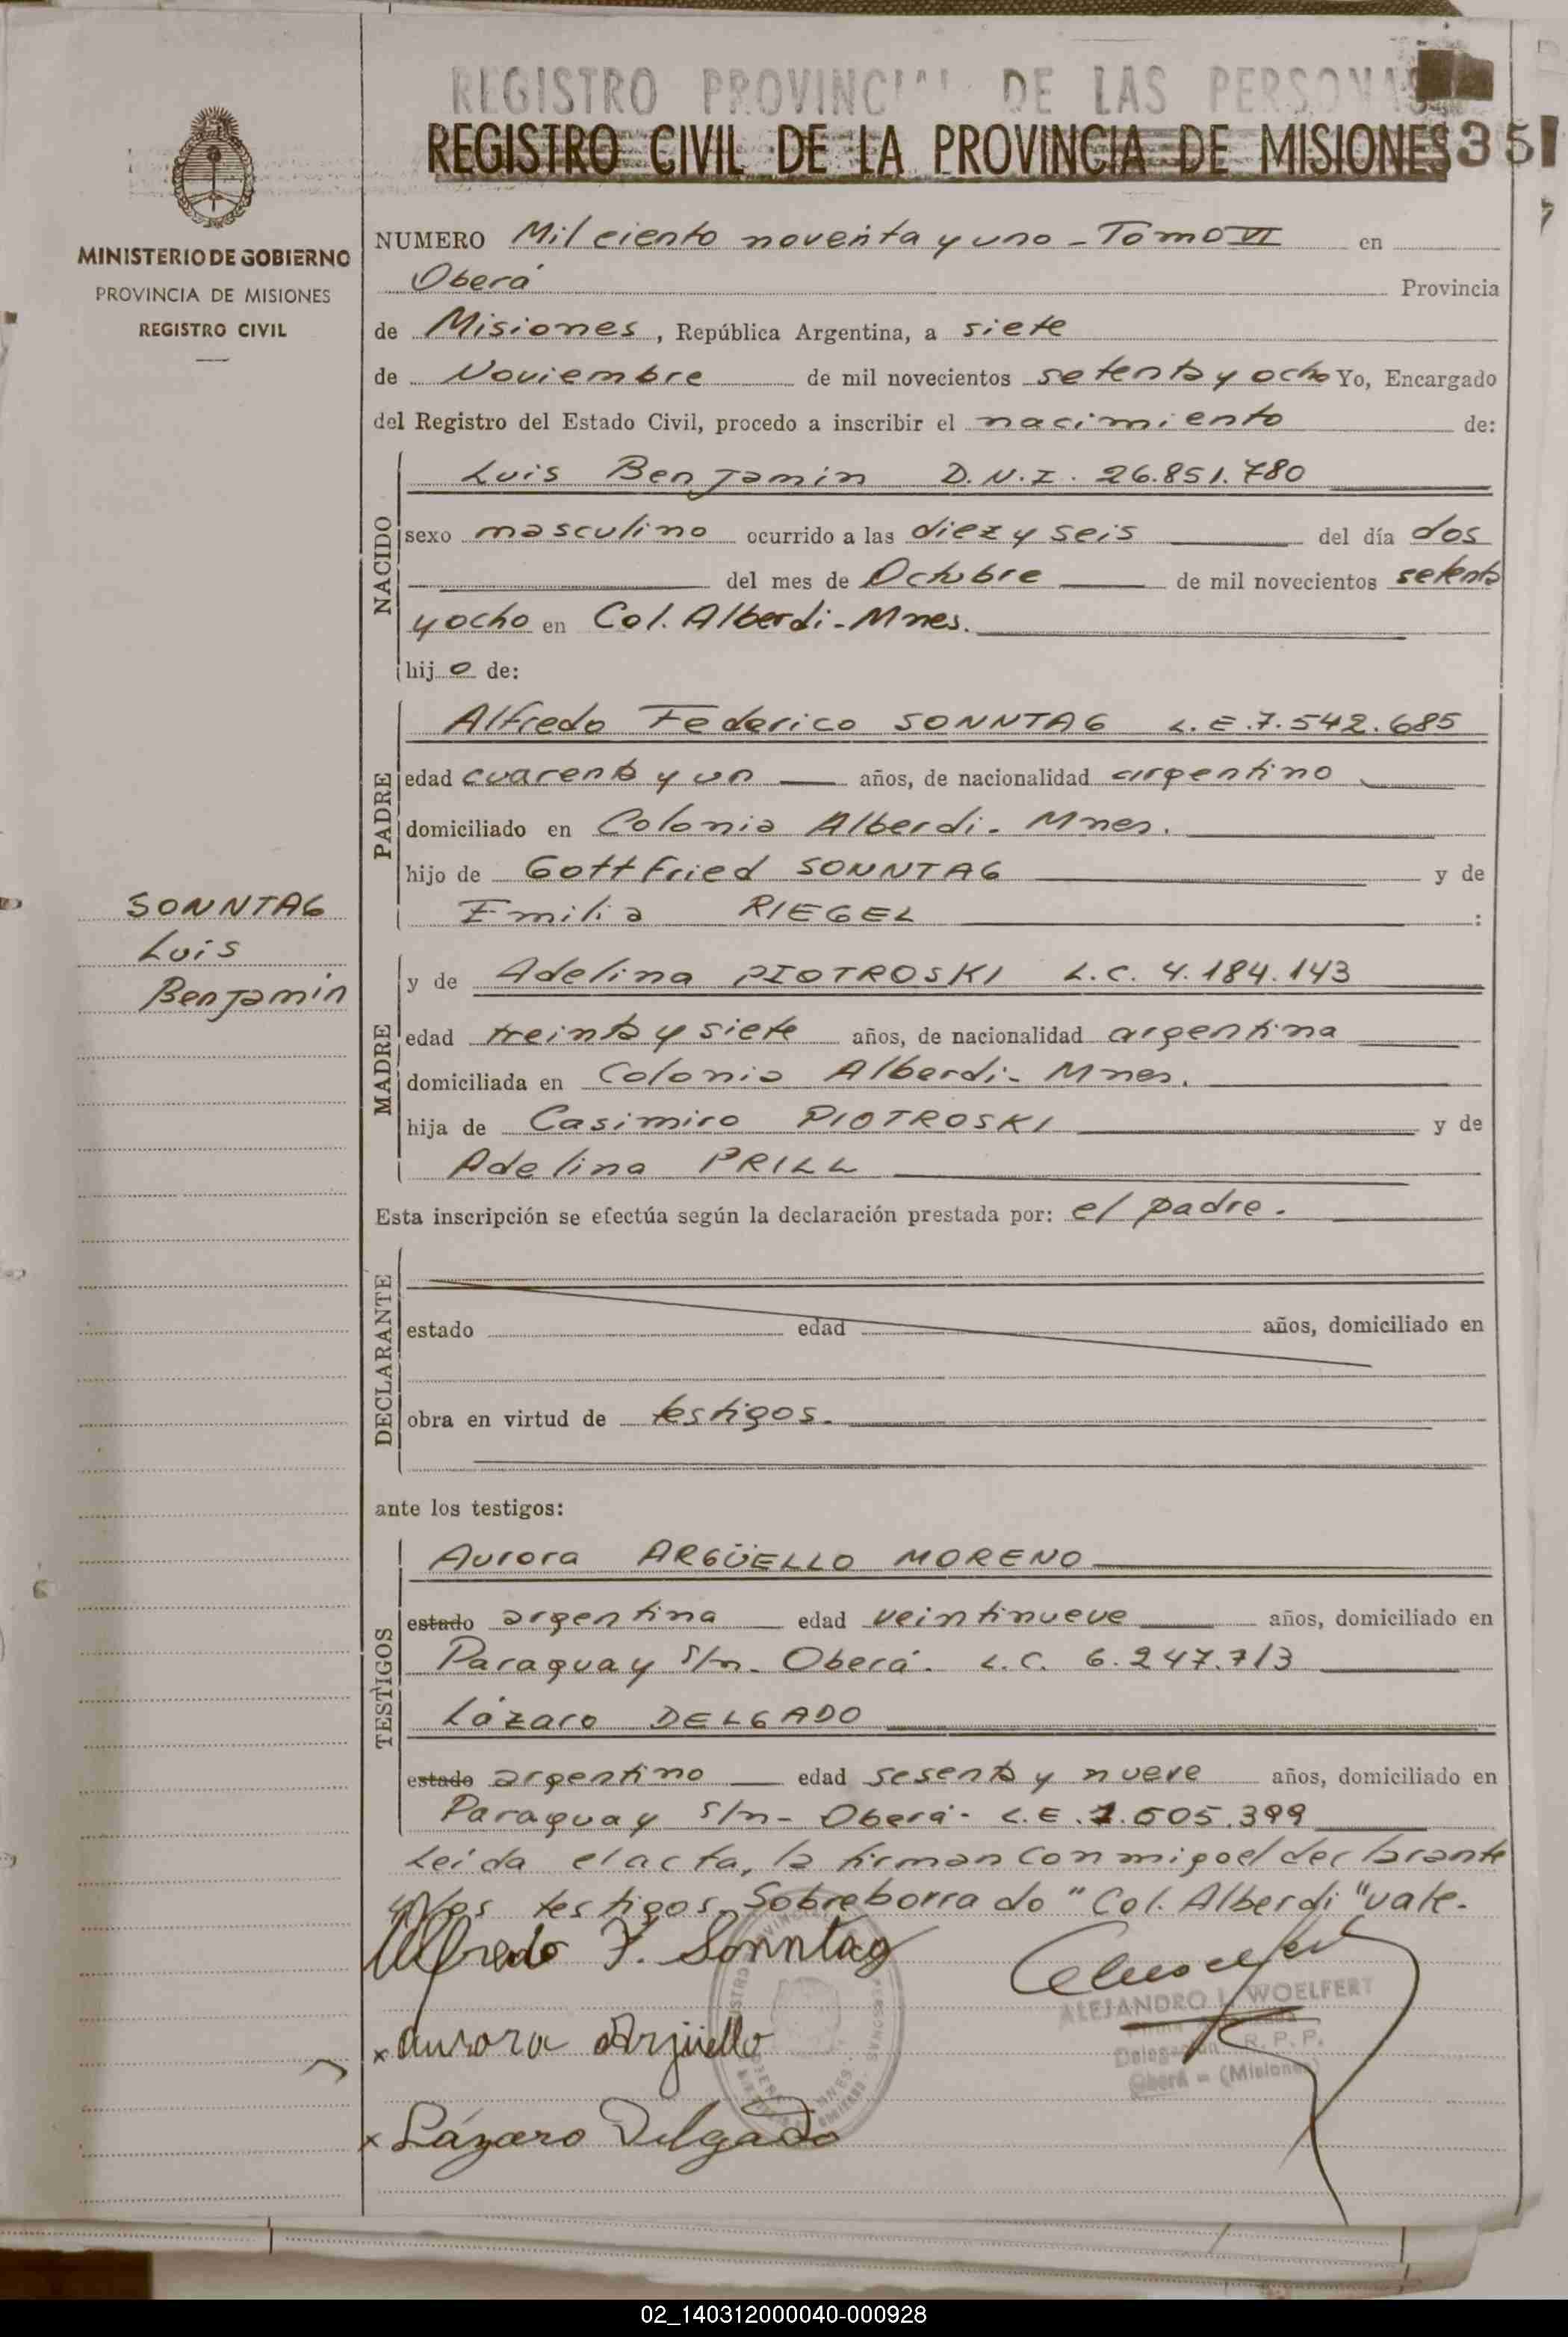 REGISTRO PROVINCIAL DE LAS PERSONAS
REGISTRO CIVIL DE LA PROVINCIA DE MISIONES 351
MINISTERIO DE GOBIERNO
PROVINCIA DE MISIONES
REGISTRO CIVIL
NUMERO Mil ciento noventa y uno - Tomo VI en
Oberá Provincia
de Misiones, República Argentina, a siete
de Noviembre de mil novecientos setenta y ocho Yo, Encargado
del Registro del Estado Civil, procedo a inscribir el nacimiento de:
NACIDO
Luis Benjamin D.N.I. 26.851.780
sexo masculino ocurrido a las diez y seis del día dos
del mes de Octubre de mil novecientos setenta
y ocho en Col. Alberdi - Mnes.
hijo de:
PADRE
Alfredo Federico SONNTAG L.E. 7.542.685
edad cuarenta y un años, de nacionalidad argentino
domiciliado en Colonia Alberdi - Mnes.
hijo de Gottfried SONNTAG y de
Emilia RIEGEL :
SONNTAG
Luis
Benjamin
MADRE
y de Adelina PIOTROSKI L.C. 4.184.143
edad treinta y siete años, de nacionalidad argentina
domiciliada en Colonia Alberdi - Mnes.
hija de Casimiro PIOTROSKI y de
Adelina PRILL
Esta inscripción se efectúa según la declaración prestada por: el padre.
DECLARANTE
estado edad años, domiciliado en
obra en virtud de testigos.
ante los testigos:
TESTIGOS
Aurora ARGÜELLO MORENO
estado argentina edad veintinueve años, domiciliado en
Paraguay s/n - Oberá. L.C. 6.247.713
Lázaro DELGADO
estado argentino edad sesenta y nueve años, domiciliado en
Paraguay s/n - Oberá - L.E. 1.605.399
Leída el acta, la firman conmigo el declarante
y los testigos. Sobreborrado "Col. Alberdi" vale.
Alfredo F. Sonntag
ALEJANDRO L. WOELFERT
R. P. P.
Oberá - (Misiones)
x Aurora Argüello
x Lázaro Delgado
02_140312000040-000928